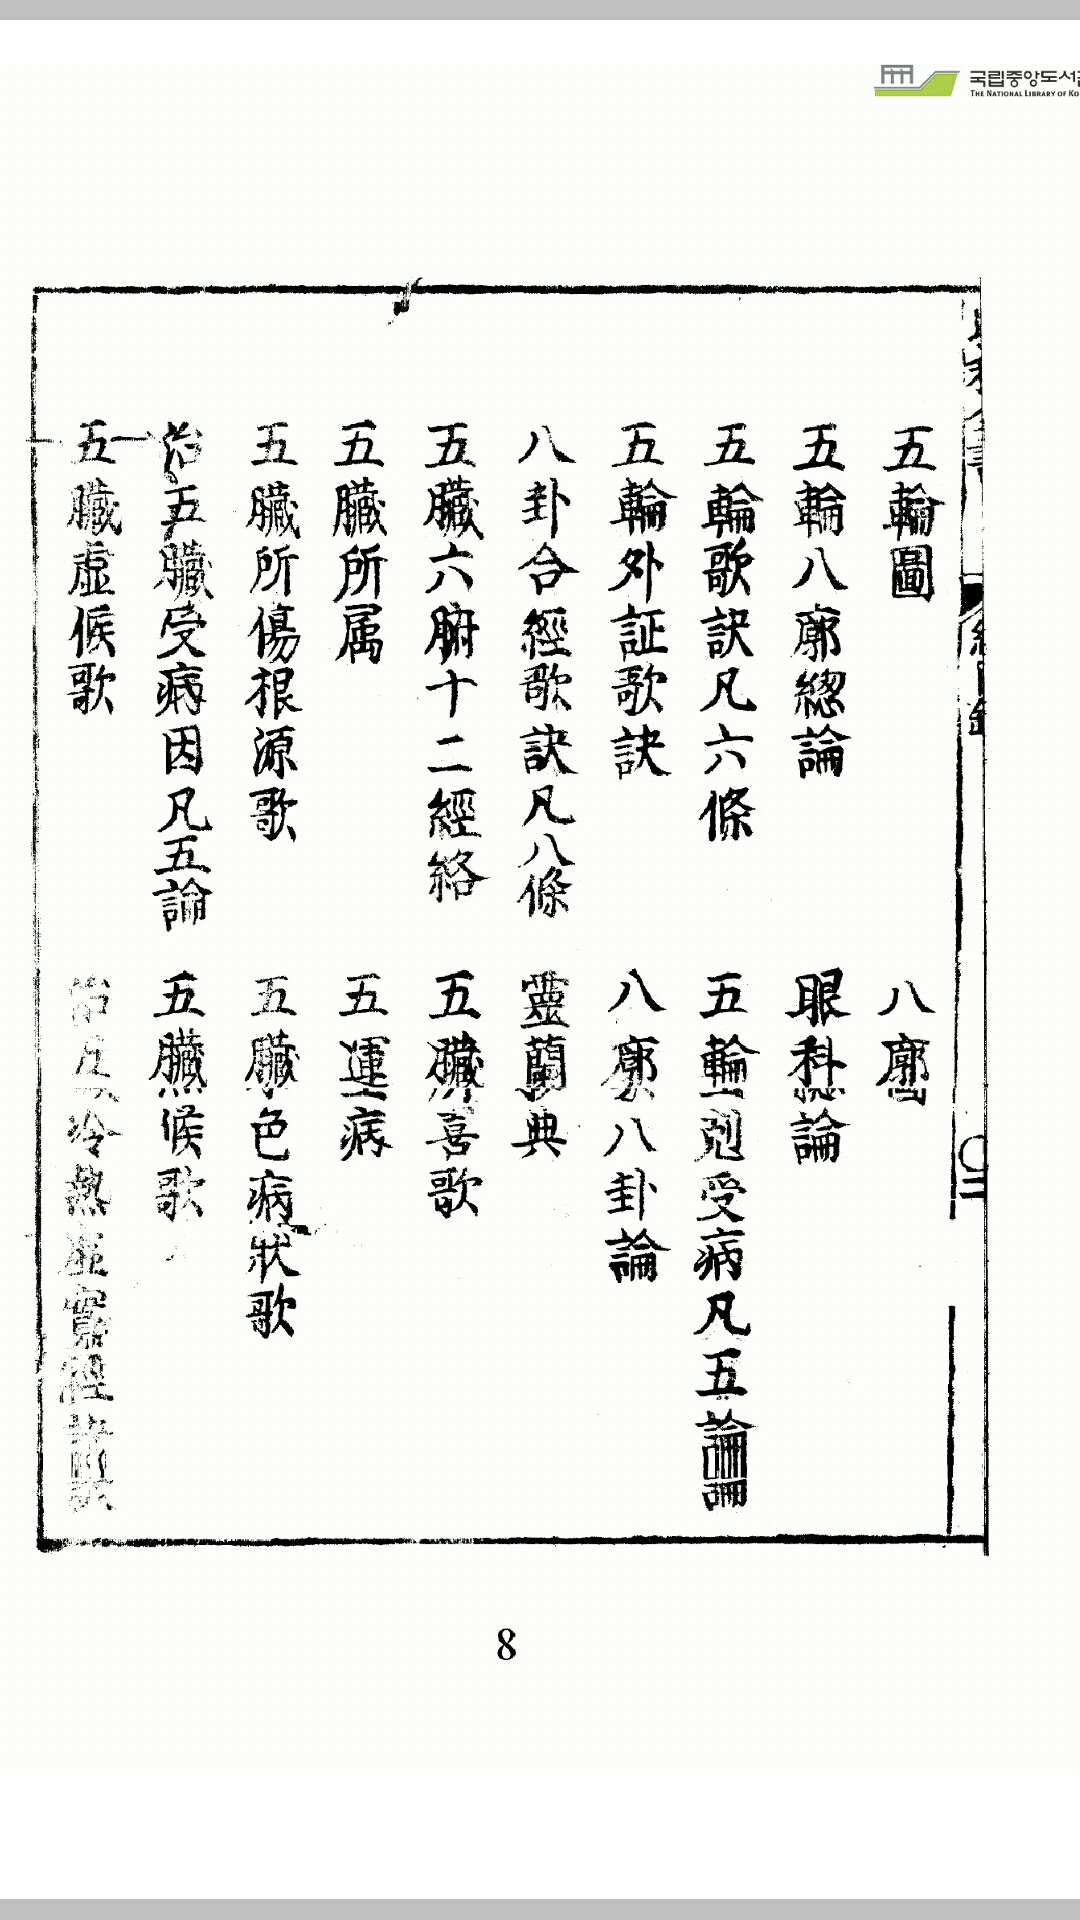 국립중앙도서
THE NATIONAL LIBRARY OF KO
五輪圖 八廓
五輪八廓總論 眼科總論
五輪歌訣凡六條 五輪 剋受病凡五論
五輪外証歌訣 八廓 八卦論
八卦合經歌訣凡八條 靈蘭 典
五臟六腑十二經絡 五臟所喜歌
五臟所属 五運 病
五臟所傷根源歌 五臟 色病狀歌
治五臟受病因凡五論 五臟 候歌
五臟虛候歌 治五 冷熱虛實經 歌
8